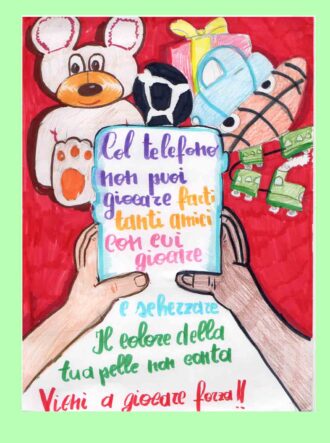 Col telefono
non puoi
giocare fatti
tanti amici
con cui
giocare
e scherzare
Il colore della
tua pelle non conta
Vieni a giocare forza!!